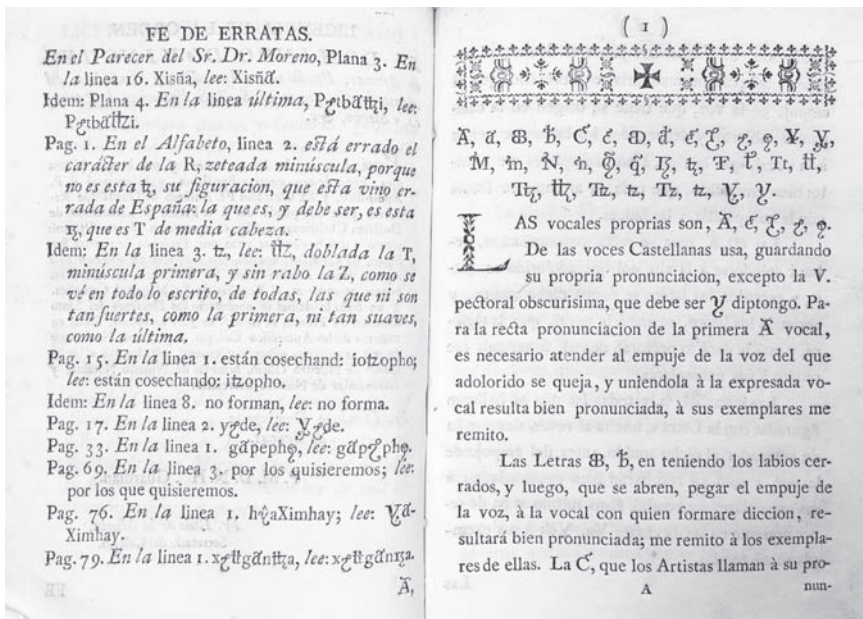 FE DE ERRATAS.
En el Parecer del Sr. Dr. Moreno, Plana 3. En
la linea 16. Xisña, lee:
Idem: Plana 4. En la linea última, lee:
Pag. 1. En el Alfabeto, linea 2. está errado el
carácter de la R, zeteada minúscula, porque
no es esta su figuracion, que esta vino er-
rada de España: la que es, y debe ser, es esta
que es T de media cabeza.
Idem: En la linea 3. lee: doblada la T,
minúscula primera, y sin rabo la Z, como se
vé en todo lo escrito, de todas, las que ni son
tan fuertes, como la primera, ni tan suaves,
como la última,
Pag. 15. En la linea 1. están cosechand: iotzopho;
lee: están cosechando:
Idem: En la linea 8. no forman, lee: no forma.
Pag. 17. En la linea 2. lee:
Pag. 33. En la linea 1. lee:
Pag. 69. En la linea 3. por los quisieremos; lee:
por los que quisieremos.
Pag. 76. En la linea 1. lee:
Ximhay.
Pag. 79. En la linea 1. lee:
( 1 )
LAS vocales proprias son,
De las voces Castellanas usa, guardando
su propria pronunciacion, excepto la V.
pectoral obscurisima, que debe ser diptongo. Pa-
ra la recta pronunciacion de la primera vocal,
es necesario atender al empuje de la voz del que
adolorido se queja, y uniendola à la expresada vo-
cal resulta bien pronunciada, à sus exemplares me
remito.
Las Letras en teniendo los labios cer-
rados, y luego, que se abren, pegar el empuje de
la voz, à la vocal con quien formare diccion, re-
sultará bien pronunciada; me remito à los exempla-
res de ellas. La que los Artistas llaman à su pro-
A nun-